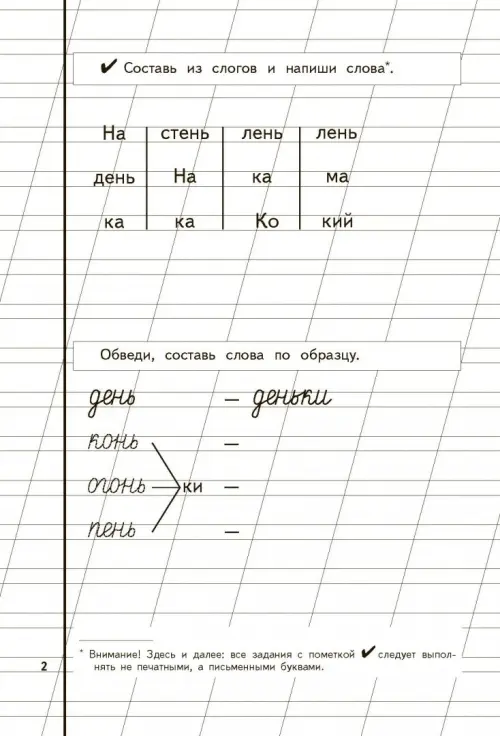 ✔ Составь из слогов и напиши слова*.
На стень лень лень
день На ка ма
ка ка Ко кий
Обведи, составь слова по образцу.
день — деньки
конь —
огонь ки —
пень —
* Внимание! Здесь и далее: все задания с пометкой ✔ следует выпол-
2 нять не печатными, а письменными буквами.